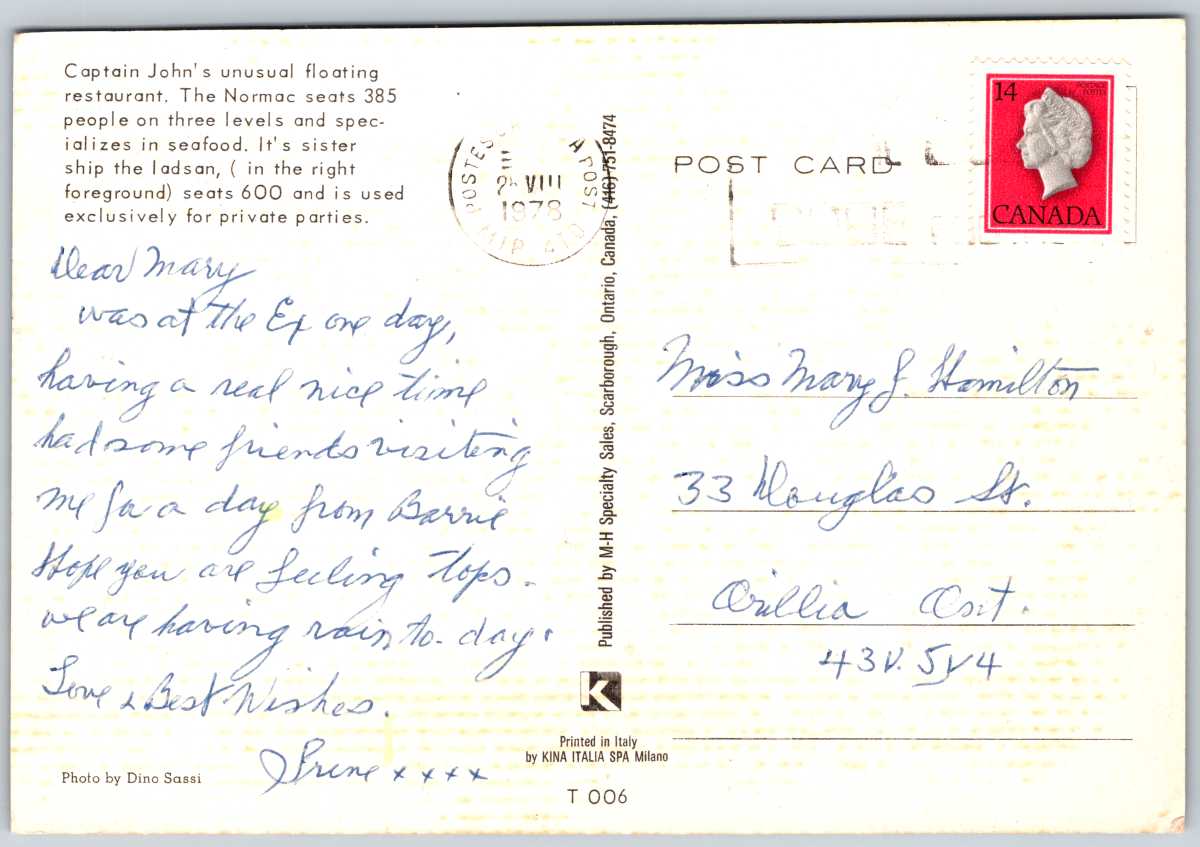 Captain John's unusual floating
restaurant. The Normac seats 385
people on three levels and spec-
ializes in seafood. It's sister
ship the Iadsan, ( in the right
foreground) seats 600 and is used
exclusively for private parties.
Dear Mary
was at the Ex one day,
having a real nice time
had some friends visiting
me for a day from Barrie
Hope you are feeling tops.
we are having rain to-day.
Love & Best Wishes.
Irene x x x x
Photo by Dino Sassi
POSTES
POST
VIII
1978
Published by M-H Specialty Sales, Scarborough, Ontario, Canada, (416) 751-8474
K
Printed in Italy
by KINA ITALIA SPA Milano
T 006
POST CARD
14
POSTAGE
POSTES
CANADA
Miss Mary J. Hamilton
33 Douglas St.
Orillia Ont.
43V. 5V4